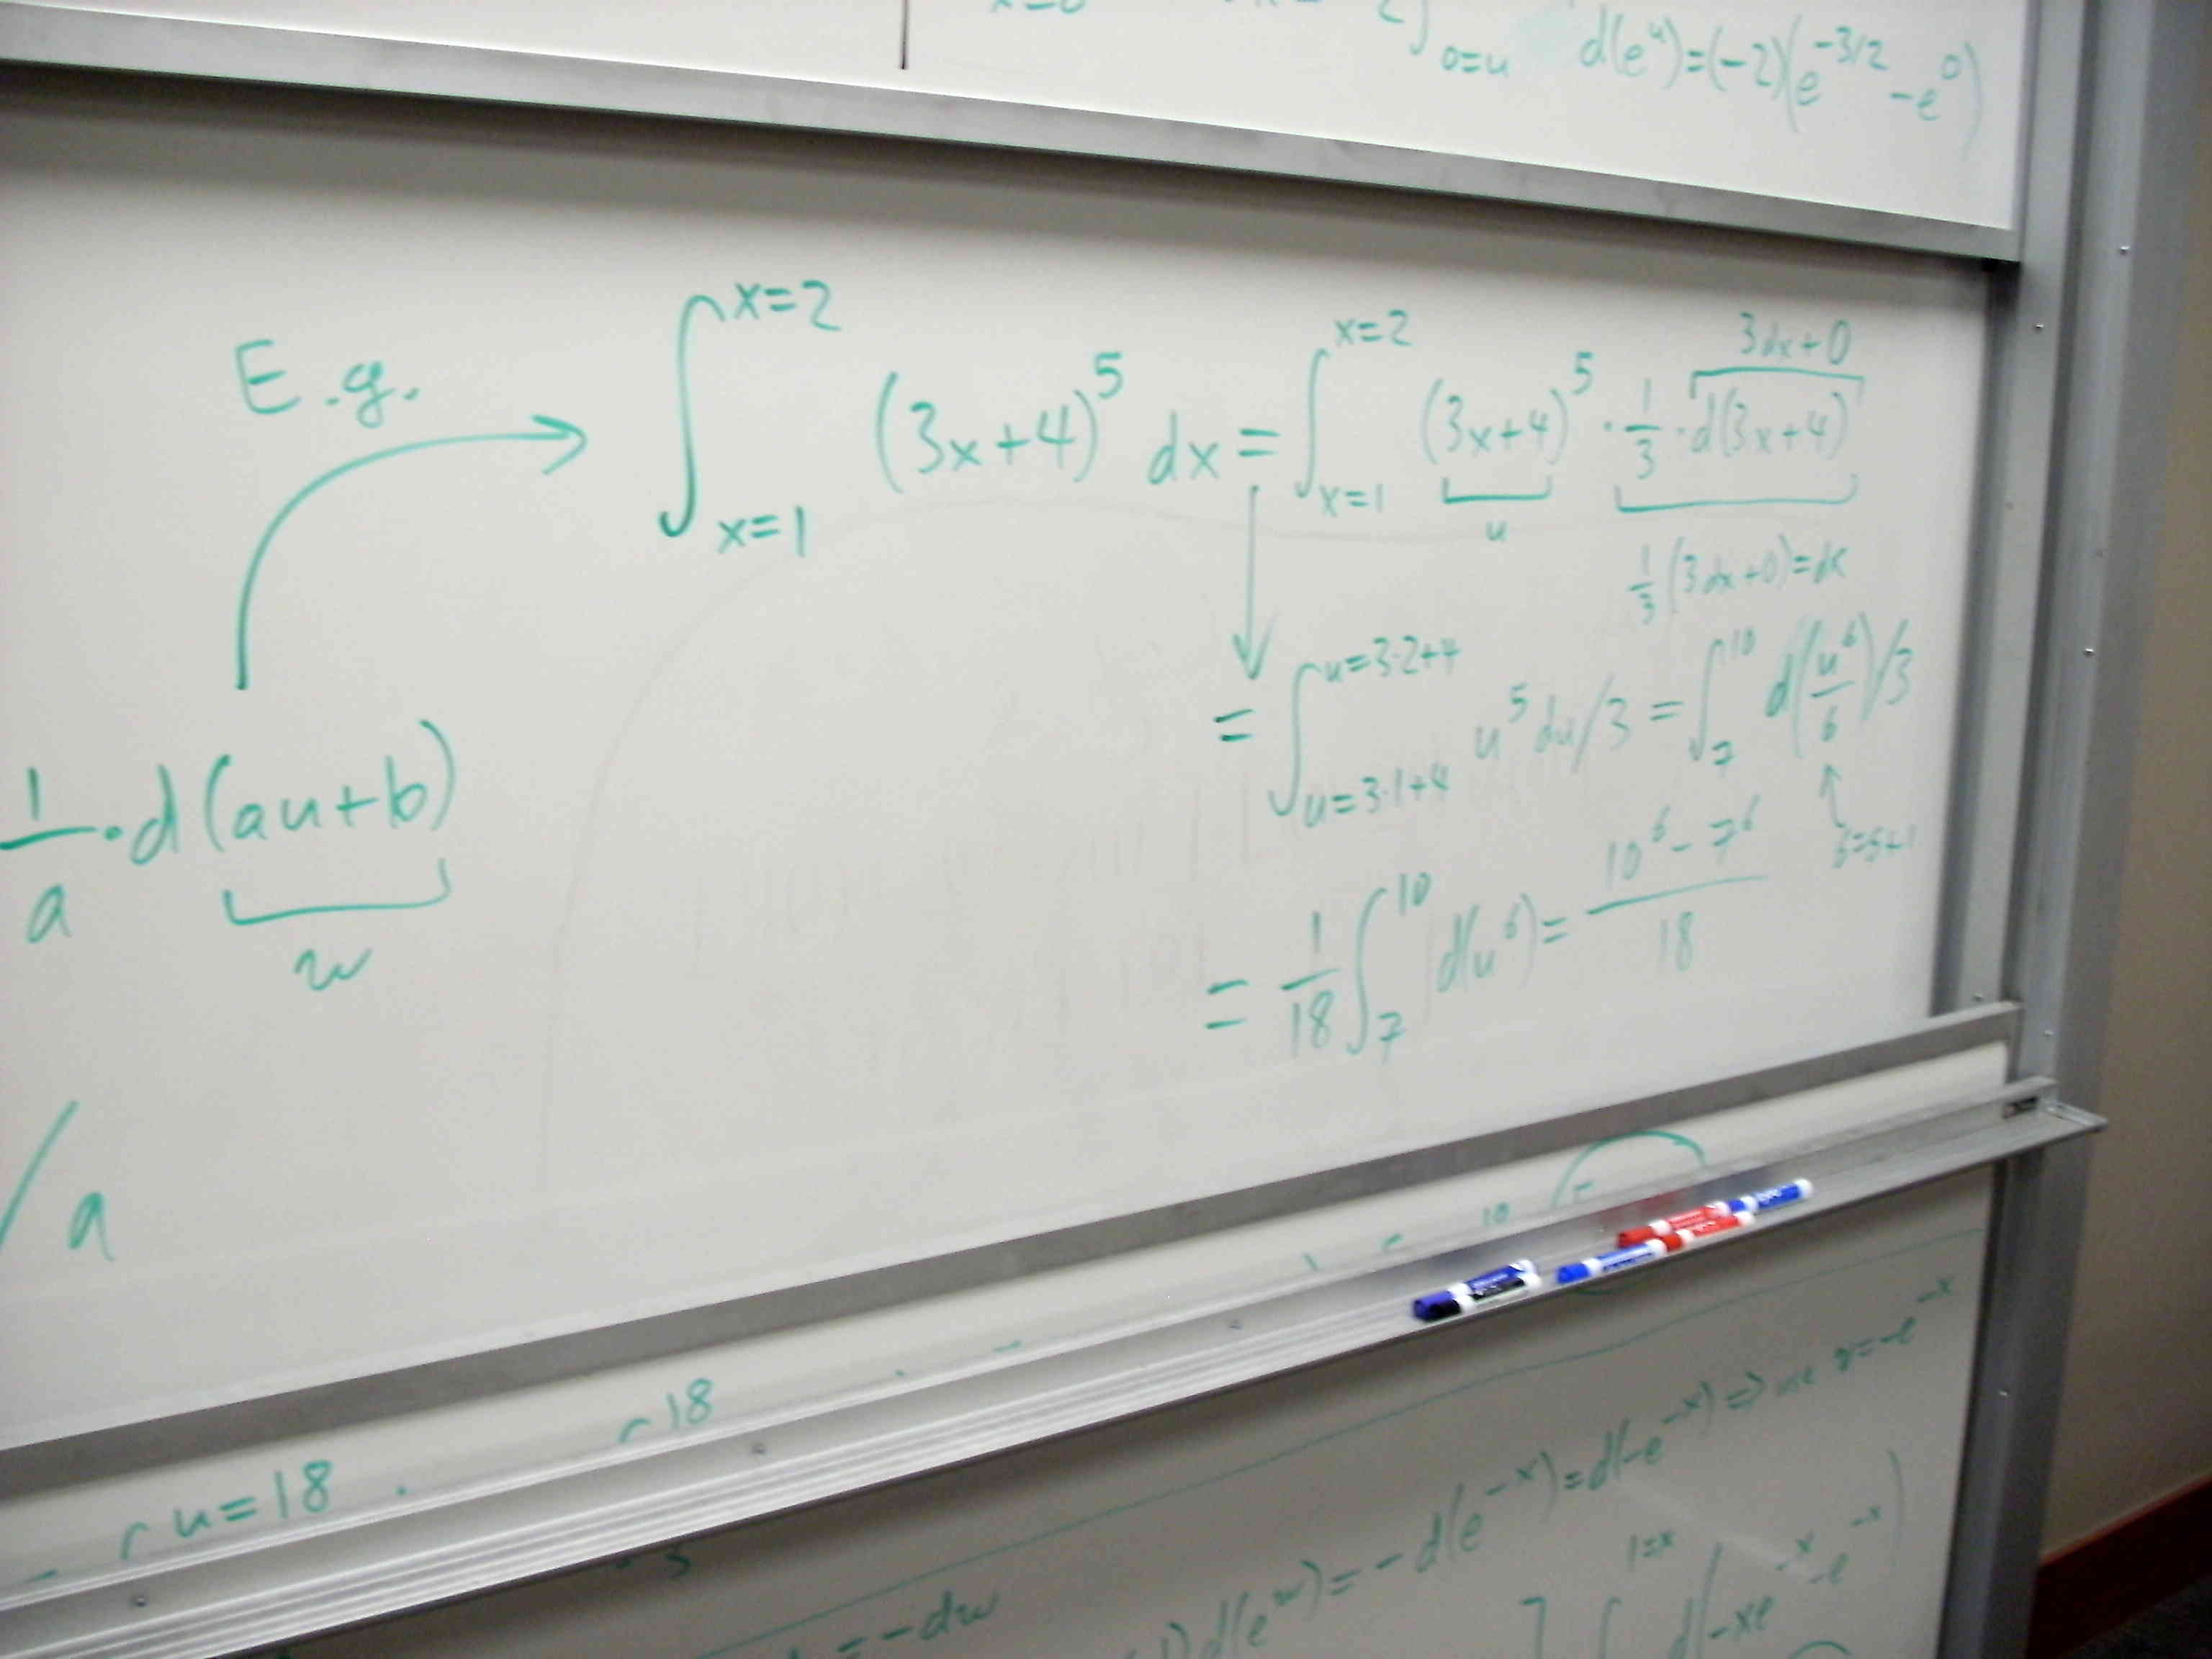 0=u d(e^u)=(-2)(e^{-3/2}-e^0)
E.g.
∫_{x=1}^{x=2} (3x+4)^5 dx = ∫_{x=1}^{x=2} (3x+4)^5 · 1/3 · d(3x+4)
3dx+0
u
1/3(3dx+0)=dx
= ∫_{u=3·1+4}^{u=3·2+4} u^5 du/3 = ∫_7^{10} d(u^6/6)/3
6=5+1
1/a · d(au+b)
w
= 1/18 ∫_7^{10} d(u^6) = (10^6-7^6)/18
/a
10
18
u=18
=> use v=-e^{-x}
d(e^w)=-d(e^{-x})=d(-e^{-x})
=-dw
1=x
d(-xe^{-x}-e^{-x})